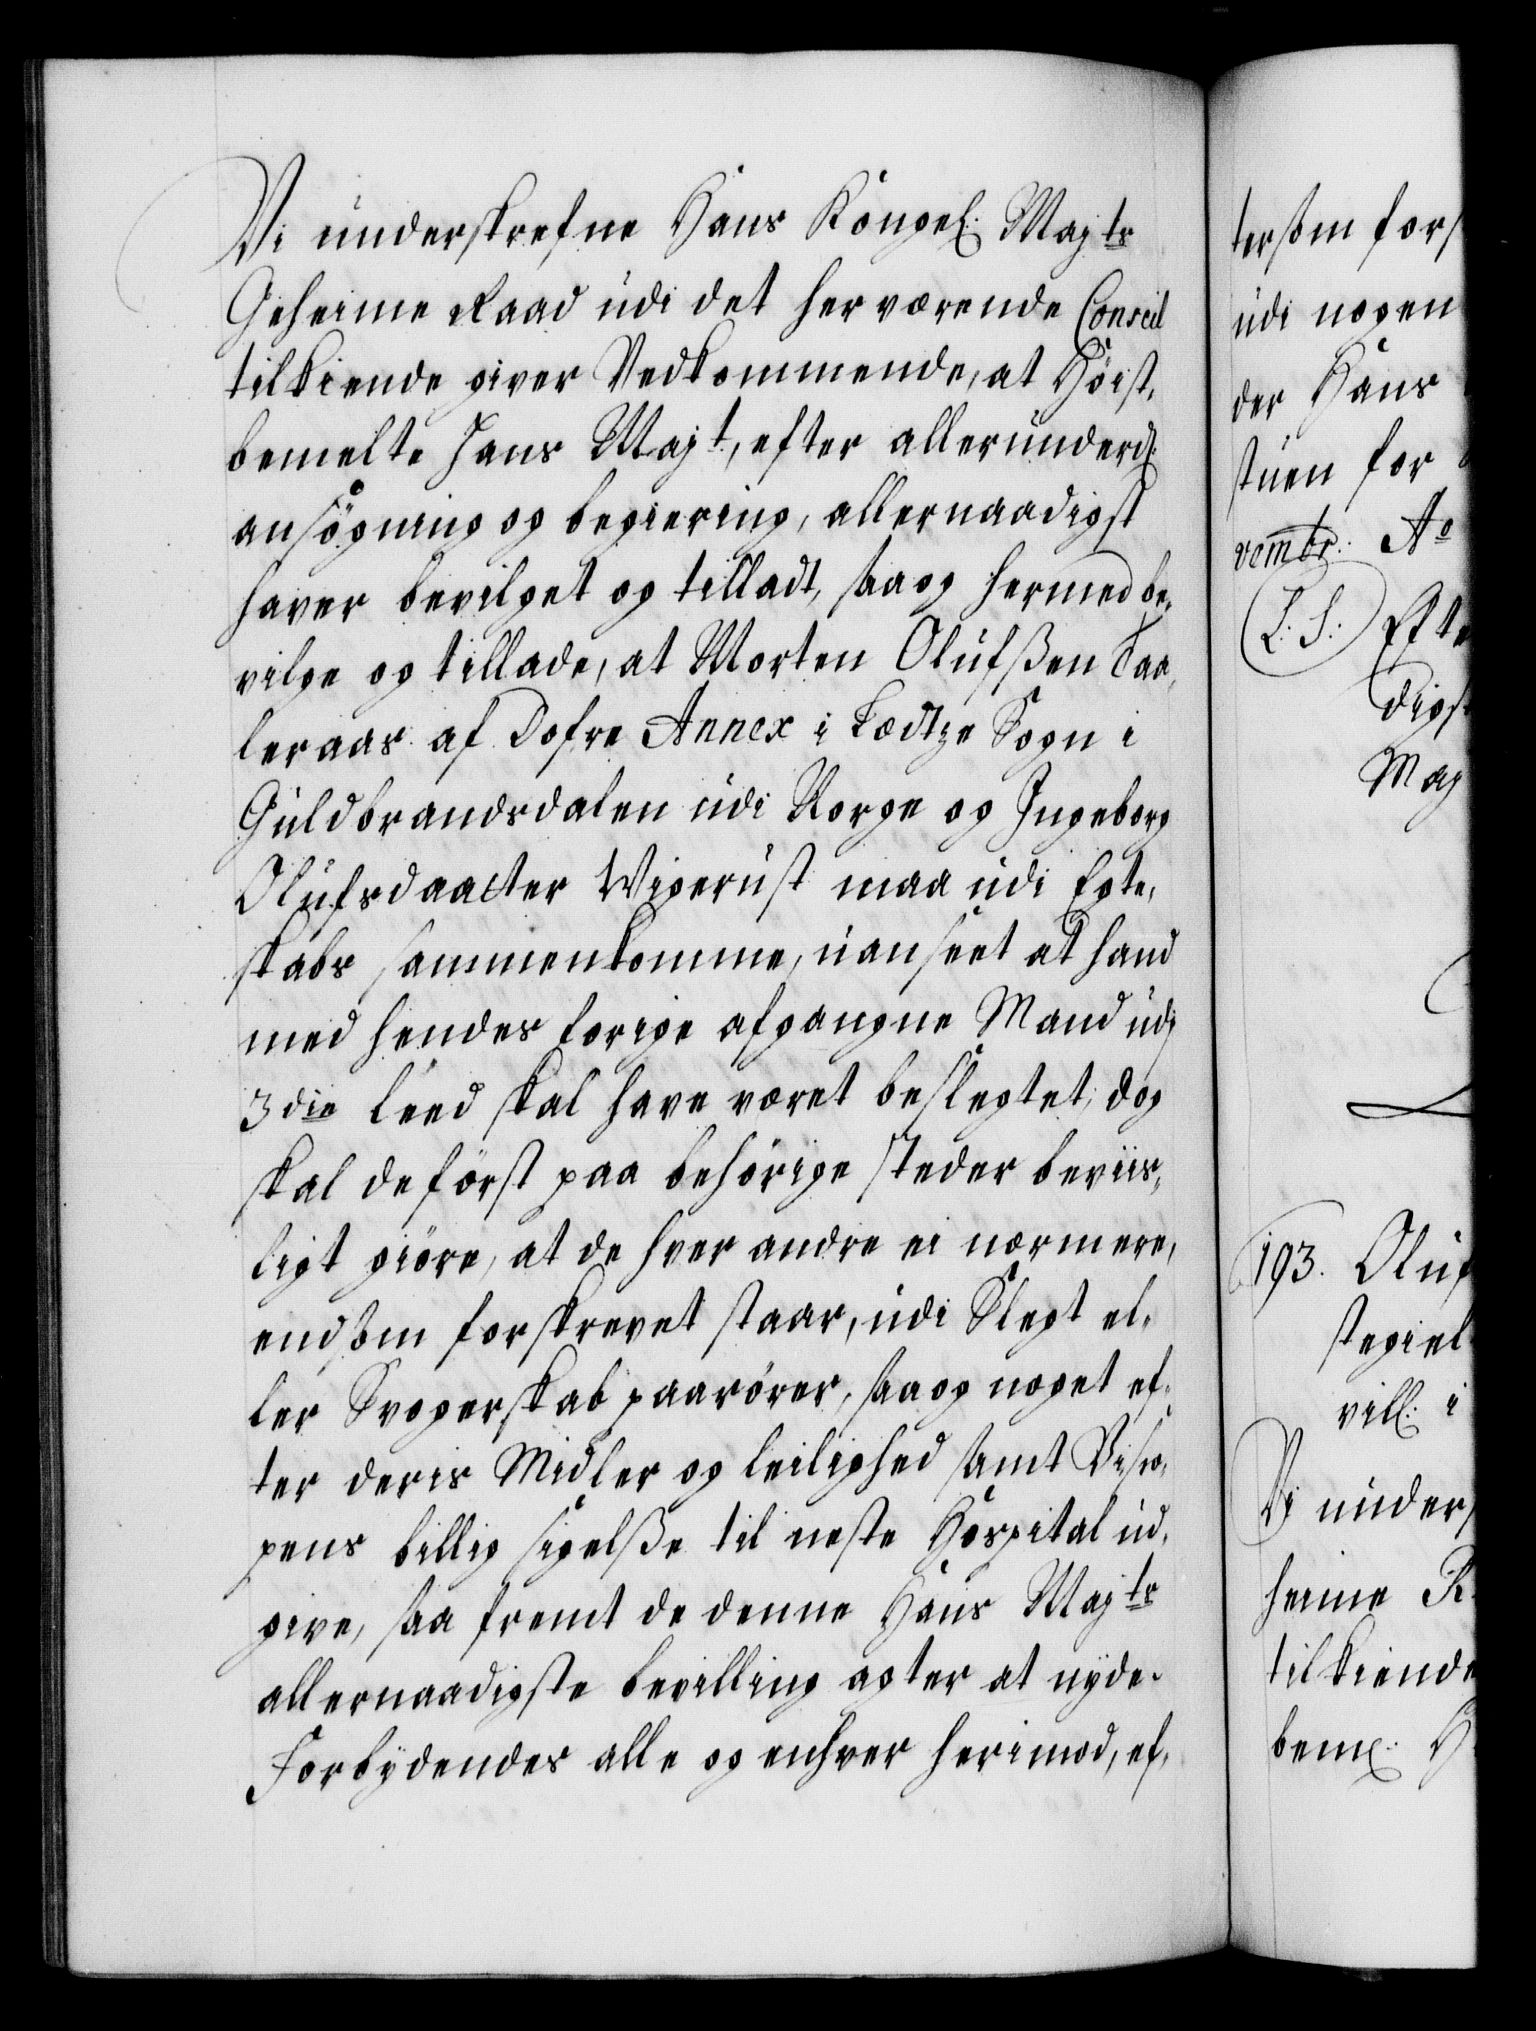 Vi underskrefne Hans Kongel: Maj:ts
Geheime Raad udi det herværende Conseil
tilkiende giver Vedkommende, at Höist-
bemelte Hans Majt, efter allerunderd:
ansögning og begiering, allernaadigst
haver bevilget og tilladt, saa og hermed be-
vilge og tillade, at Morten Olufßen Taa-
leraas af Dofre Annex i Lædtze Sogn i
Guldbrandsdalen udi Norge og Ingeborg
Olufsdaatter Wigerust maa udi Egte-
skabs sammenkomme, uanseet at hand
med hendes forige afgangne Mand udj
3die leed skal have været beslegtet; dog
skal de först paa behörige steder beviis-
ligt giöre, at de hver andre ei nærmere,
endsom forskrevet staar, udi Slegt el-
ler Svogerskab paarörer, saa og noget ef-
ter deris Midler og leilighed samt Bisco-
pens billig sigelße til neste Hospital ud-
give, saa fremt de denne Hans Majts
allernaadigste bevilling agter at nyde.
Forbydendes alle og enhver herimod, ef-
terßom fors
udi nogen
der Hans
stuen for
vembr: Ao
L. S. Efte
digst
Maj
193. Oluf
stegiel
vill: i
Vi unders
heime R
tilkiende
bem: H